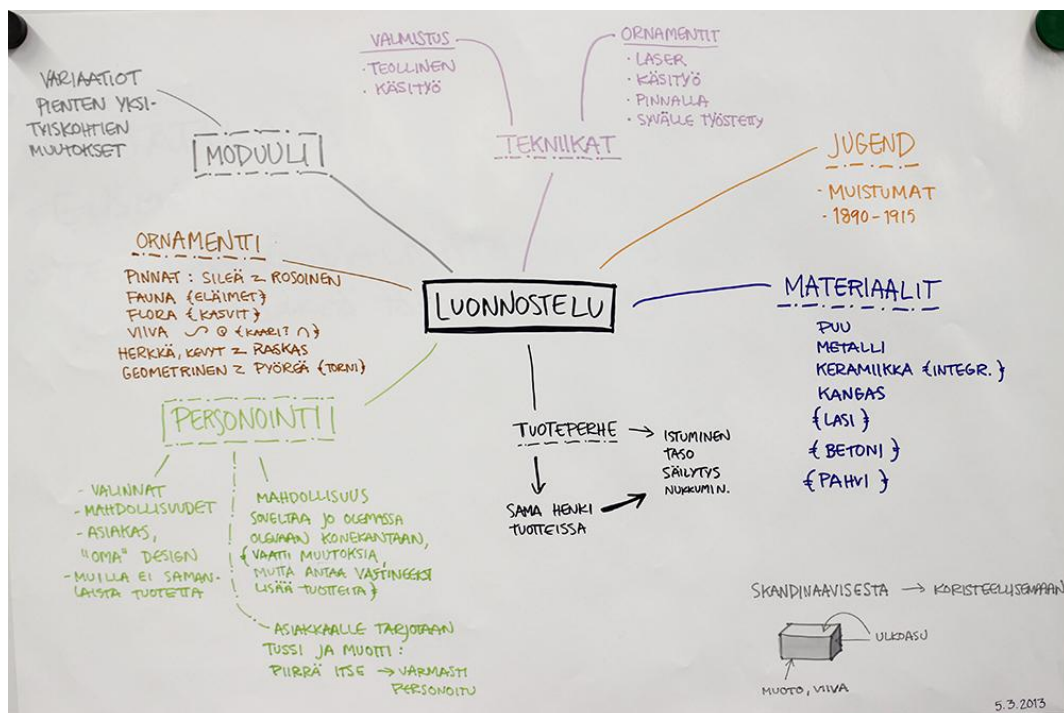 VARIAATIOT
PIENTEN YKSI-
TYISKOHTIEN
MUUTOKSET
MODUULI
VALMISTUS
· TEOLLINEN
· KÄSITYÖ
ORNAMENTIT
· LASER
· KÄSITYÖ
· PINNALLA
· SYVÄLLE TYÖSTETTY
TEKNIIKAT
JUGEND
- MUISTUMAT
- 1890-1915
ORNAMENTTI
PINNAT : SILEÄ Z ROSOINEN
FAUNA {ELÄIMET}
FLORA {KASVIT}
VIIVA {KAARI? ∩}
HERKKÄ, KEVYT Z RASKAS
GEOMETRINEN Z PYÖREÄ {TORNI}
LUONNOSTELU
MATERIAALIT
PUU
METALLI
KERAMIIKKA {INTEGR.}
KANGAS
{LASI}
{BETONI}
{PAHVI}
PERSONOINTI
- VALINNAT
- MAHDOLLISUUDET
- ASIAKAS,
"OMA" DESIGN
- MUILLA EI SAMAN-
LAISTA TUOTETTA
MAHDOLLISUUS
SOVELTAA JO OLEMASSA
OLEVAAN KONEKANTAAN,
{VAATII MUUTOKSIA,
MUTTA ANTAA VASTINEEKSI
LISÄÄ TUOTTEITA}
- ASIAKKAALLE TARJOTAAN
TUSSI JA MUOTTI :
PIIRRÄ ITSE → VARMASTI
PERSONOITU
TUOTEPERHE →
ISTUMINEN
TASO
SÄILYTYS
NUKKUMIN.
SAMA HENKI
TUOTTEISSA
SKANDINAAVISESTA → KORISTEELLISEMPAAN
ULKOASU
MUOTO, VIIVA
5.3.2013